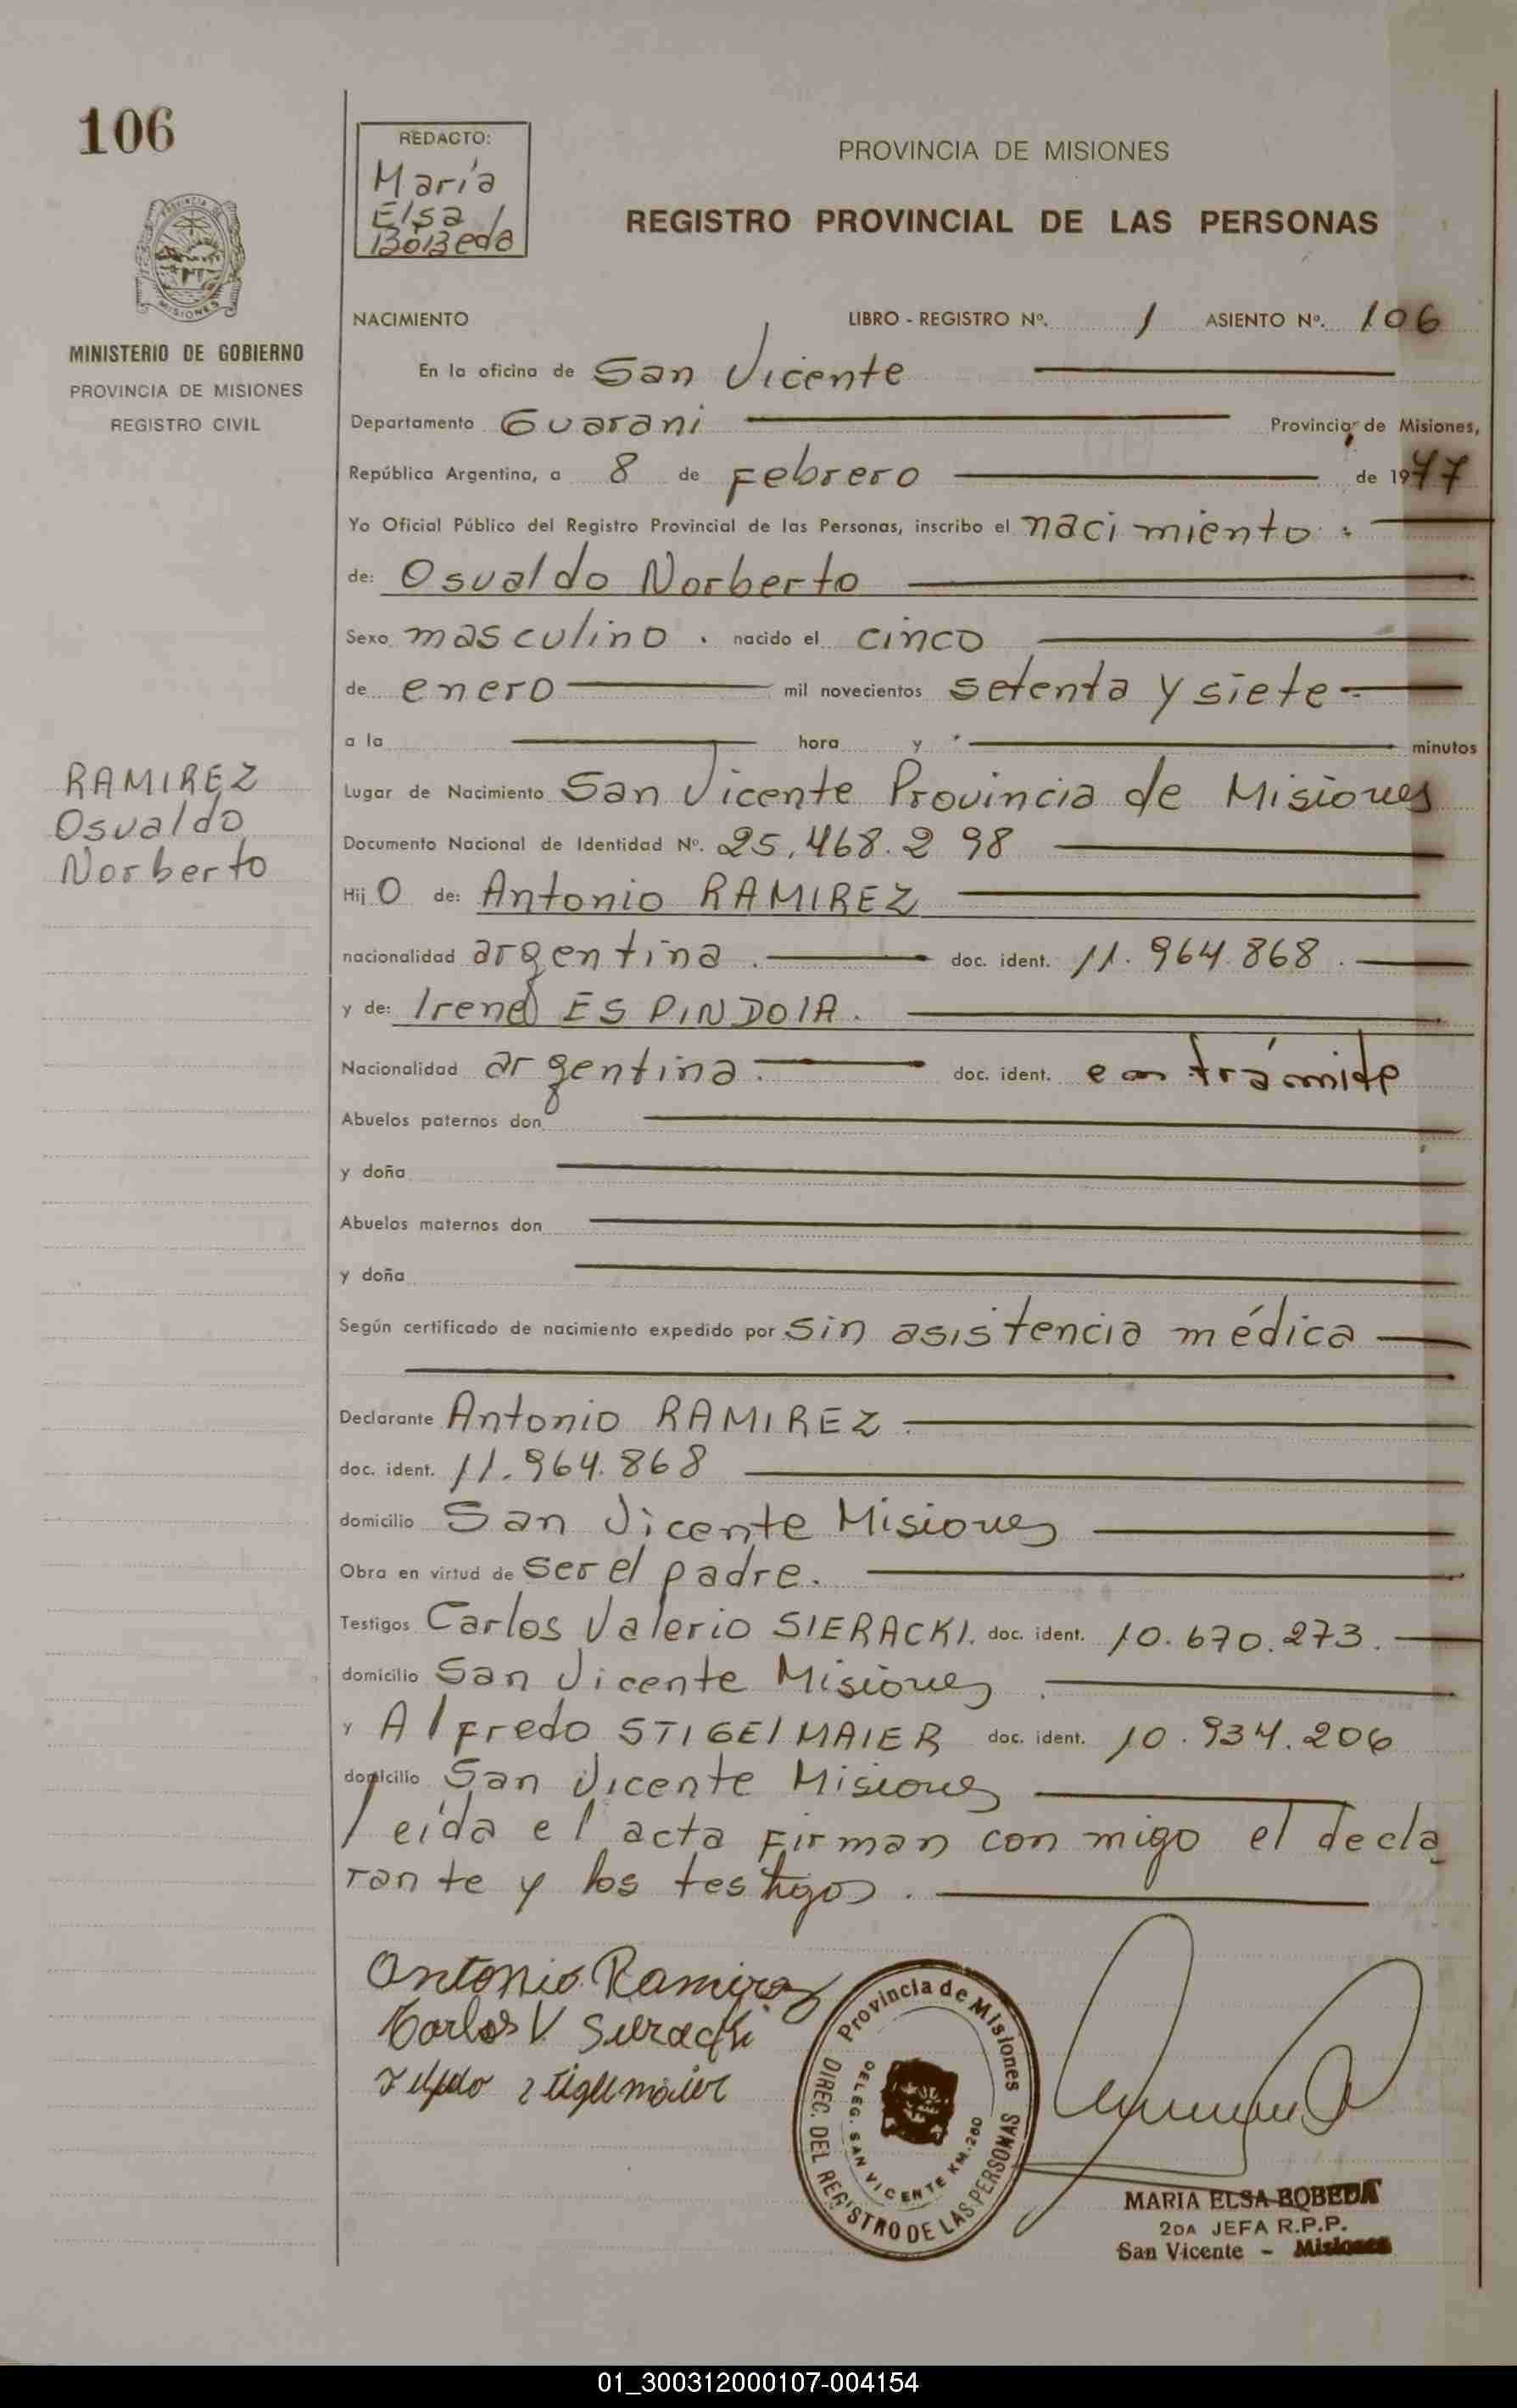 106
REDACTO:
María
Elsa
Bobeda
PROVINCIA DE MISIONES
REGISTRO PROVINCIAL DE LAS PERSONAS
PROVINCIA
MISIONES
MINISTERIO DE GOBIERNO
PROVINCIA DE MISIONES
REGISTRO CIVIL
NACIMIENTO LIBRO - REGISTRO Nº. 1 ASIENTO Nº. 106
En la oficina de San Vicente
Departamento Guarani Provincia de Misiones,
República Argentina, a 8 de Febrero de 1977
Yo Oficial Público del Registro Provincial de las Personas, inscribo el nacimiento.
de: Osvaldo Norberto
Sexo masculino. nacido el cinco
de enero mil novecientos setenta y siete
a la hora y minutos
RAMIREZ
Osvaldo
Norberto
Lugar de Nacimiento San Vicente Provincia de Misiones
Documento Nacional de Identidad Nº. 25.468.298
Hijo de: Antonio RAMIREZ
nacionalidad argentina. doc. ident. 11.964.868.
y de: Irene ESPINDOlA.
Nacionalidad argentina. doc. ident. en trámite
Abuelos paternos don
y doña
Abuelos maternos don
y doña
Según certificado de nacimiento expedido por sin asistencia médica
Declarante Antonio RAMIREZ.
doc. ident. 11.964.868
domicilio San Vicente Misiones
Obra en virtud de ser el padre.
Testigos Carlos Valerio SIERACKI. doc. ident. 10.670.273.
domicilio San Vicente Misiones.
y Alfredo STIGElMAIER doc. ident. 10.934.206
domicilio San Vicente Misiones
leída el acta Firman con migo el decla
rante y los testigos.
Antonio Ramirez
Carlos V Sieracki
Provincia de Misiones
DIREC. DEL REGISTRO DE LAS PERSONAS
DELEG. SAN VICENTE KM. 260
MARIA ELSA BOBEDA
2DA JEFA R.P.P.
San Vicente - Misiones
01_300312000107-004154